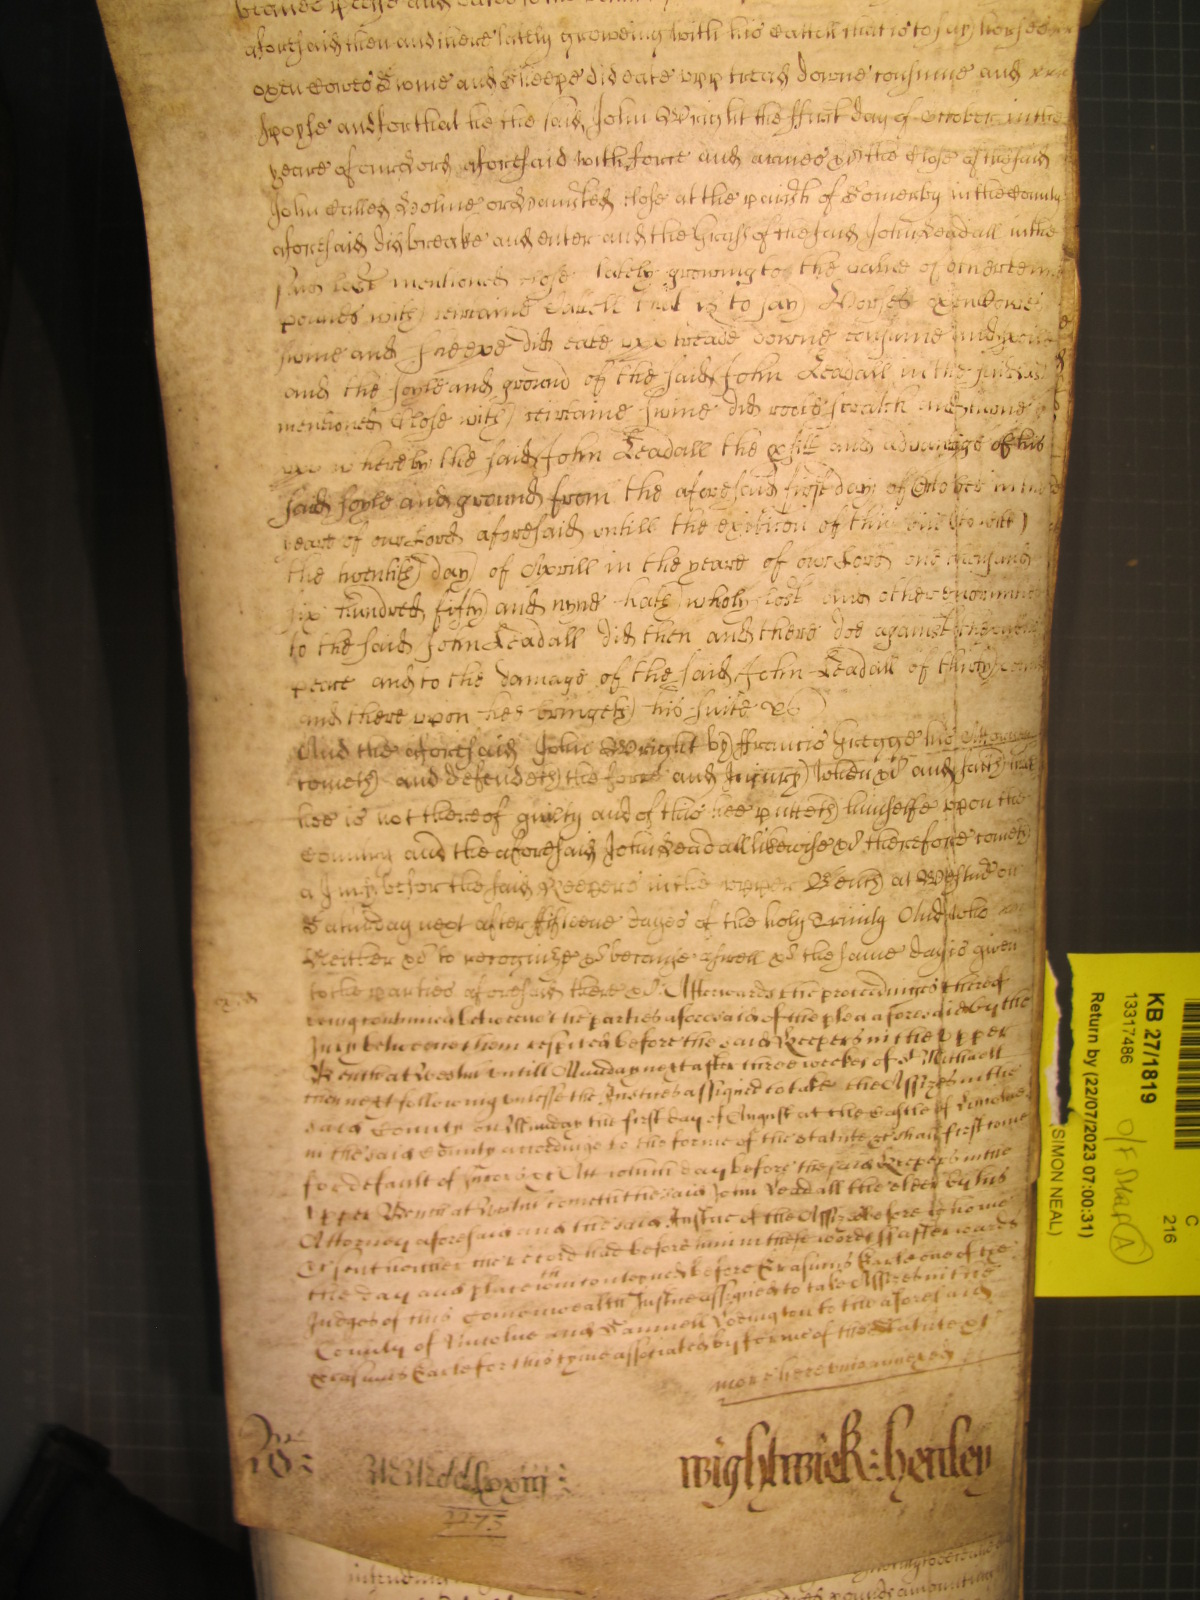 aforesaid then and there lately groweing with his Cattell that is to say horses
oxen Cowes Swine and Sheepe did eate upp tread downe consume and
spoyle and for that he the said John Wright the ffirst day of October in the
yeare of our Lord aforesaid with force and armes &c the Close of the said
John Called close at the parish of Somerby in the County
aforesaid did breake and enter and the Grass of the said John Leadall in the
said last mentioned close lately growing to the value of
pounds with certaine Cattell that is to say Horses Oxen Cowes
swine and sheepe did eate upp treade downe consume and
and the soyle and ground of the said John Leadall in the said last
mentioned Close with certaine swine did roote scratch and
upp whereby the said John Leadall the profitt and advantage of his
said soyle and ground from the aforesaid first day of October in the
yeare of our Lord aforesaid untill the exibicon of this bill (to witt)
the twentith day of Aprill in the yeare of our Lord one thousand
six hundred fifty and nyne hath wholy lost and other enormities
to the said John Leadall did then and there doe against the publique
peace and to the damage of the said John Leadall of thirty pounds
and there upon hee bringeth his suite &c
And the aforesaid John Wright by ffrancis Gregge his Attorney
cometh and defendeth the force and Injury when &c and saith that
hee is not thereof guilty and of this hee putteth himselfe upon the
Country and the aforesaid John Leadall likewise &c therefore cometh
a Jury before the said Keepers in the upper Bench at Westm on
Saturday next after fifteene dayes of the holy Trinity And who
Neither &c to recognize &c because aswell &c the same day is given
to the parties aforesaid there &c Afterwards the proceedinges thereof
being continued betweene the parties aforesaid of the plea aforesaid by the
Jury betweene them respited before the said Keepers in the Upper
Bench at Westm untill Munday next after three weekes of St Michaell
then next following unlesse the Justices assigned to take the Assizes in the
said County on Munday the first day of August at the Castle of Lincolne
in the said County accordinge to the forme of the statute &c shall first come
for default of Jurors &c Att which day before the said Keepers in the
Upper Bench at Westm cometh the said John Leadall the elder by his
Attorney aforesaid and the said Justice of the Assize before whome
&c sent hither the record had before him in these words ss afterwards
the day and place within conteyned before Erasmus Earle one of the
Judges of this Comonwealth Justice assigned to take Assizes in the
County of Lincolne and Samuell Lodington to the aforesaid
Erasmus Earle for this tyme associated by forme of the Statute &c
more hereunto annexed
Ro: MMcclxxiij: wightwick: henley
2273
C
216
KB 27/1819
13317486
O/F Shelf (A)
Return by (22/07/2023 07:00:31)
(SIMON NEAL)